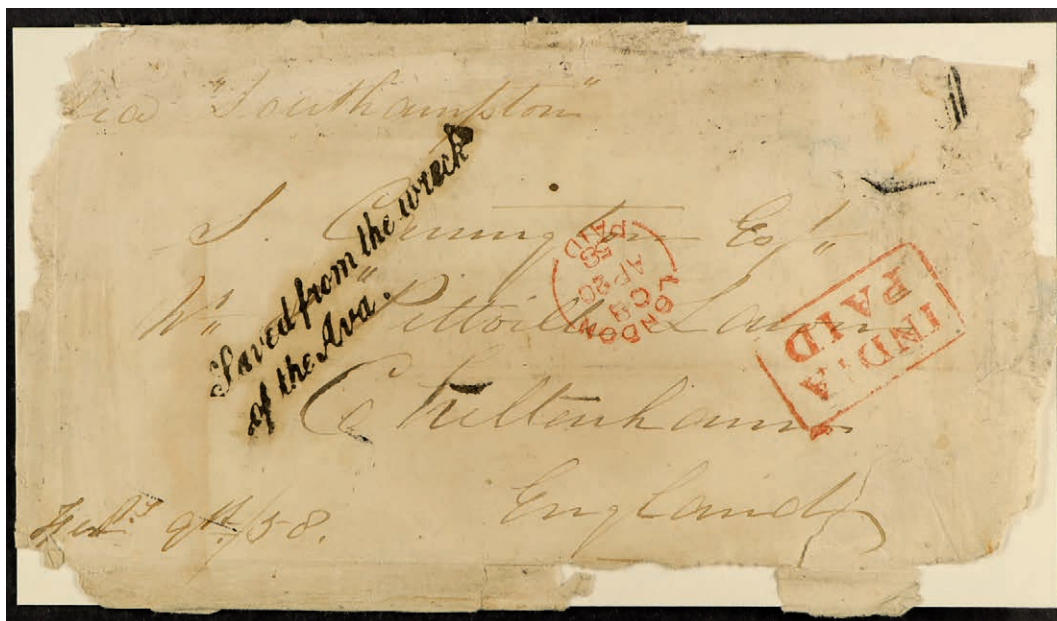 via "Southampton"
Saved from the wreck
of the Ava.
S. Cunnington Esqr
"Pittville Lawn
Cheltenham
England
9th/58.
LONDON
C8
AP 20
58
PAID
INDIA
PAID